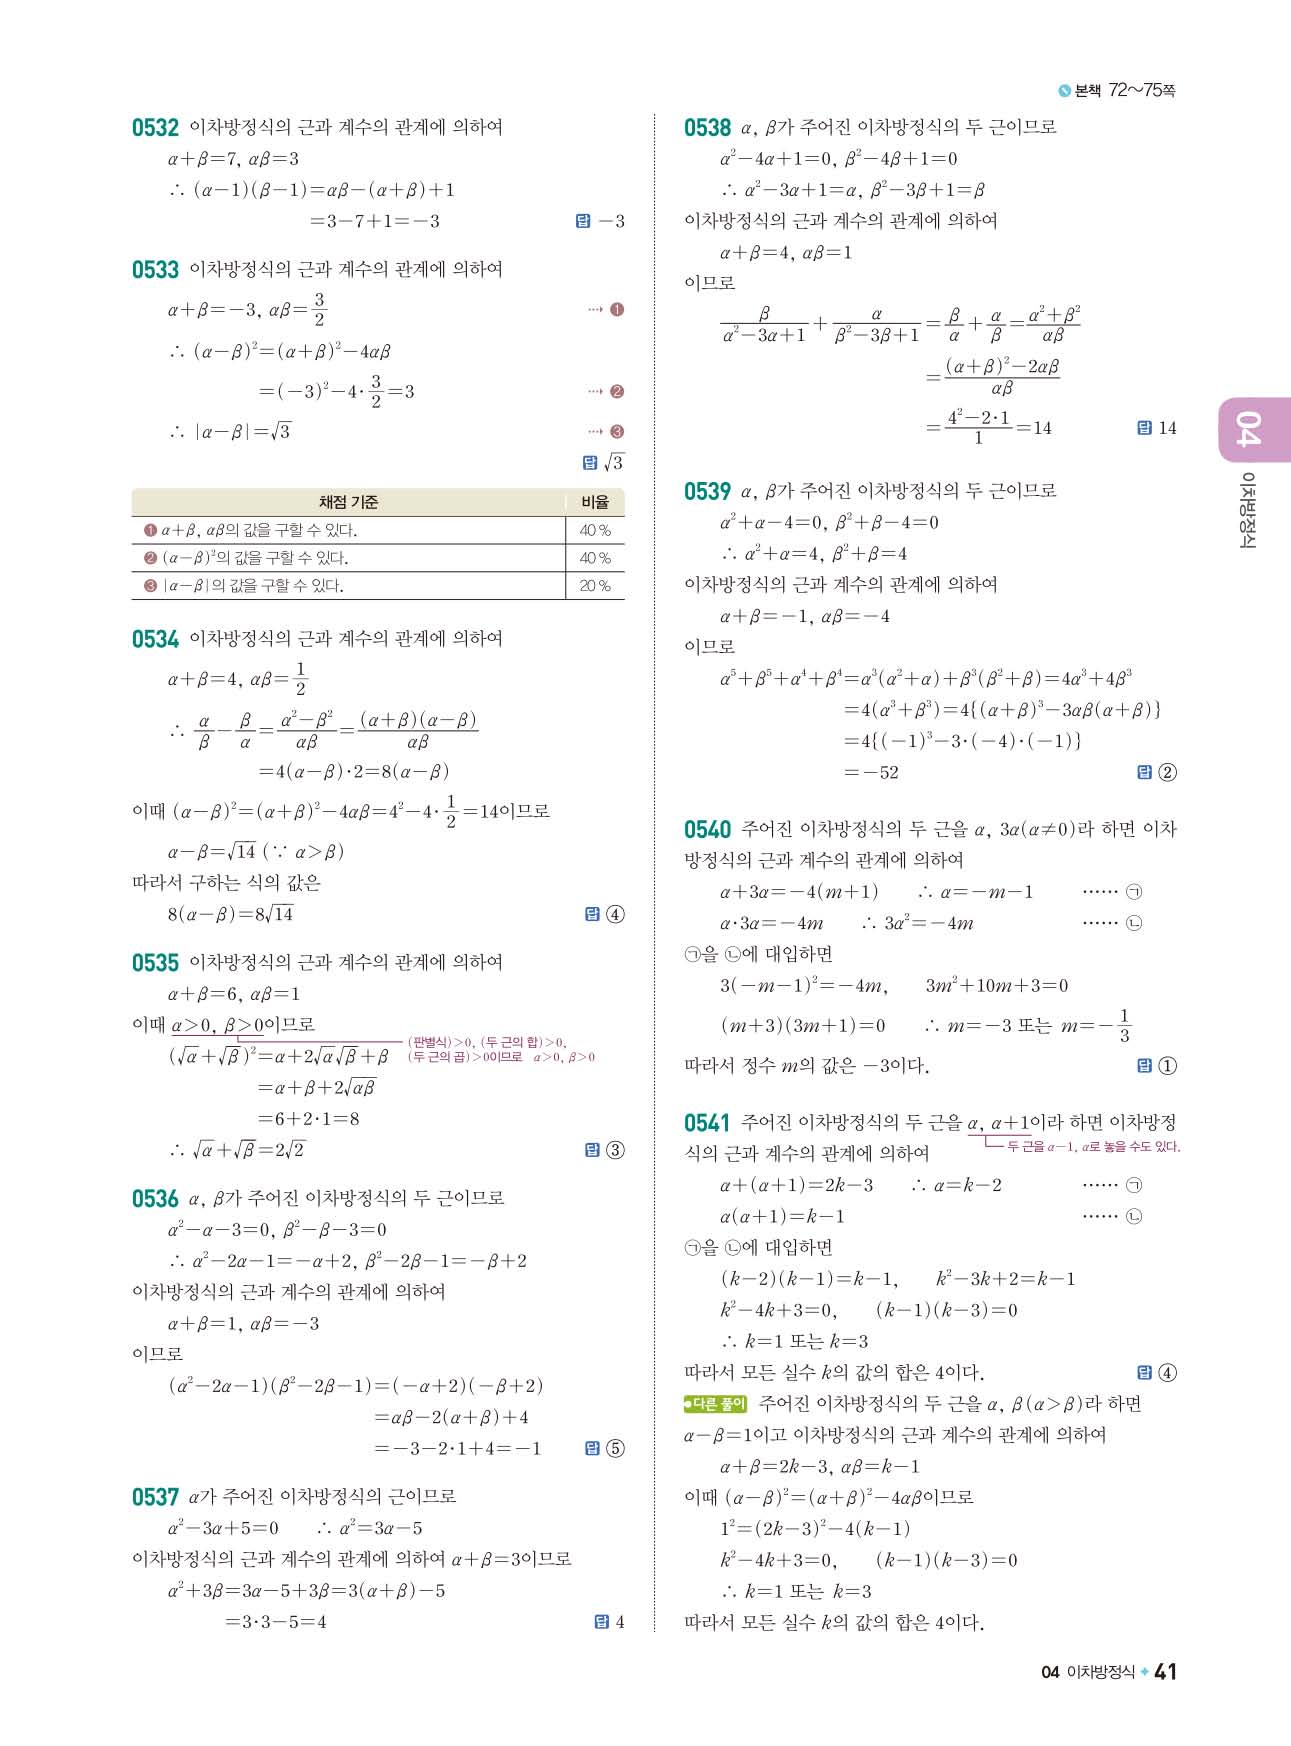 본책 72~75쪽
0532 이차방정식의 근과 계수의 관계에 의하여
α+β=7, αβ=3
∴ (α-1)(β-1)=αβ-(α+β)+1
=3-7+1=-3 답 -3
0533 이차방정식의 근과 계수의 관계에 의하여
α+β=-3, αβ=3/2 ⋯ ❶
∴ (α-β)²=(α+β)²-4αβ
=(-3)²-4·3/2=3 ⋯ ❷
∴ |α-β|=√3 ⋯ ❸
답 √3
채점 기준 비율
❶ α+β, αβ의 값을 구할 수 있다. 40 %
❷ (α-β)²의 값을 구할 수 있다. 40 %
❸ |α-β|의 값을 구할 수 있다. 20 %
0534 이차방정식의 근과 계수의 관계에 의하여
α+β=4, αβ=1/2
∴ α/β-β/α=(α²-β²)/αβ=(α+β)(α-β)/αβ
=4(α-β)·2=8(α-β)
이때 (α-β)²=(α+β)²-4αβ=4²-4·1/2=14이므로
α-β=√14 (∵ α>β)
따라서 구하는 식의 값은
8(α-β)=8√14 답 ④
0535 이차방정식의 근과 계수의 관계에 의하여
α+β=6, αβ=1
이때 α>0, β>0이므로
(판별식)>0, (두 근의 합)>0,
(두 근의 곱)>0이므로 α>0, β>0
(√α+√β)²=α+2√α√β+β
=α+β+2√αβ
=6+2·1=8
∴ √α+√β=2√2 답 ③
0536 α, β가 주어진 이차방정식의 두 근이므로
α²-α-3=0, β²-β-3=0
∴ α²-2α-1=-α+2, β²-2β-1=-β+2
이차방정식의 근과 계수의 관계에 의하여
α+β=1, αβ=-3
이므로
(α²-2α-1)(β²-2β-1)=(-α+2)(-β+2)
=αβ-2(α+β)+4
=-3-2·1+4=-1 답 ⑤
0537 α가 주어진 이차방정식의 근이므로
α²-3α+5=0 ∴ α²=3α-5
이차방정식의 근과 계수의 관계에 의하여 α+β=3이므로
α²+3β=3α-5+3β=3(α+β)-5
=3·3-5=4 답 4
0538 α, β가 주어진 이차방정식의 두 근이므로
α²-4α+1=0, β²-4β+1=0
∴ α²-3α+1=α, β²-3β+1=β
이차방정식의 근과 계수의 관계에 의하여
α+β=4, αβ=1
이므로
β/(α²-3α+1)+α/(β²-3β+1)=β/α+α/β=(α²+β²)/αβ
=((α+β)²-2αβ)/αβ
=(4²-2·1)/1=14 답 14
0539 α, β가 주어진 이차방정식의 두 근이므로
α²+α-4=0, β²+β-4=0
∴ α²+α=4, β²+β=4
이차방정식의 근과 계수의 관계에 의하여
α+β=-1, αβ=-4
이므로
α⁵+β⁵+α⁴+β⁴=α³(α²+α)+β³(β²+β)=4α³+4β³
=4(α³+β³)=4{(α+β)³-3αβ(α+β)}
=4{(-1)³-3·(-4)·(-1)}
=-52 답 ②
0540 주어진 이차방정식의 두 근을 α, 3α(α≠0)라 하면 이차
방정식의 근과 계수의 관계에 의하여
α+3α=-4(m+1) ∴ α=-m-1 ⋯⋯ ㉠
α·3α=-4m ∴ 3α²=-4m ⋯⋯ ㉡
㉠을 ㉡에 대입하면
3(-m-1)²=-4m, 3m²+10m+3=0
(m+3)(3m+1)=0 ∴ m=-3 또는 m=-1/3
따라서 정수 m의 값은 -3이다. 답 ①
0541 주어진 이차방정식의 두 근을 α, α+1이라 하면 이차방정
두 근을 α-1, α로 놓을 수도 있다.
식의 근과 계수의 관계에 의하여
α+(α+1)=2k-3 ∴ α=k-2 ⋯⋯ ㉠
α(α+1)=k-1 ⋯⋯ ㉡
㉠을 ㉡에 대입하면
(k-2)(k-1)=k-1, k²-3k+2=k-1
k²-4k+3=0, (k-1)(k-3)=0
∴ k=1 또는 k=3
따라서 모든 실수 k의 값의 합은 4이다. 답 ④
다른 풀이 주어진 이차방정식의 두 근을 α, β(α>β)라 하면
α-β=1이고 이차방정식의 근과 계수의 관계에 의하여
α+β=2k-3, αβ=k-1
이때 (α-β)²=(α+β)²-4αβ이므로
1²=(2k-3)²-4(k-1)
k²-4k+3=0, (k-1)(k-3)=0
∴ k=1 또는 k=3
따라서 모든 실수 k의 값의 합은 4이다.
04
이차방정식
04 이차방정식 41